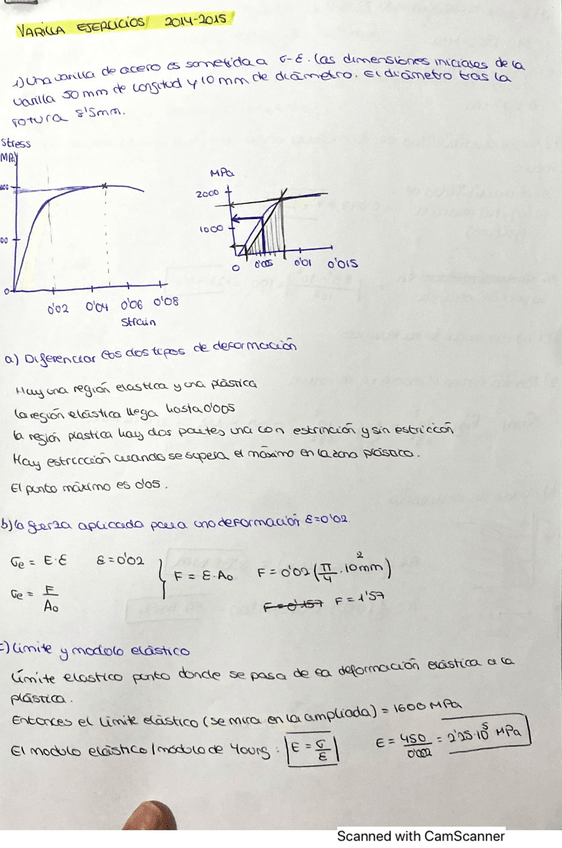 VARILLA EJERCICIOS 2014-2015
1) Una varilla de acero es sometida a σ-ε. Las dimensiones iniciales de la
varilla 50 mm de longitud y 10 mm de diámetro. El diámetro tras la
rotura 8'5mm.
Stress
MPa
0
0'02 0'04 0'06 0'08
Strain
MPa
2000
1000
0 0'005 0'01 0'015
a) Diferenciar los dos tipos de deformación
Hay una región elástica y una plástica
la región elástica llega hasta 0'005
la región plastica hay dos partes una con estrinción y sin estricción
Hay estricción cuando se supera el máximo en la zona plástico.
El punto máximo es 0'05.
b) la fuerza aplicado para una deformación ε=0'02
σe = E·ε ε=0'02
σe = F/A0
F = ε·A0 F = 0'02 (π/4 · 10mm²)
F=0'157 F=1'57
c) Límite y modolo elástico
Límite elastico punto donde se pasa de la deformación elástica a la
plástica.
Entonces el límite elástico (se mira en la ampliada) = 1600 MPa
El modulo elástico / módulo de Young: E = σ/ε E = 450/0'002 = 2'25·10⁵ MPa
Scanned with CamScanner